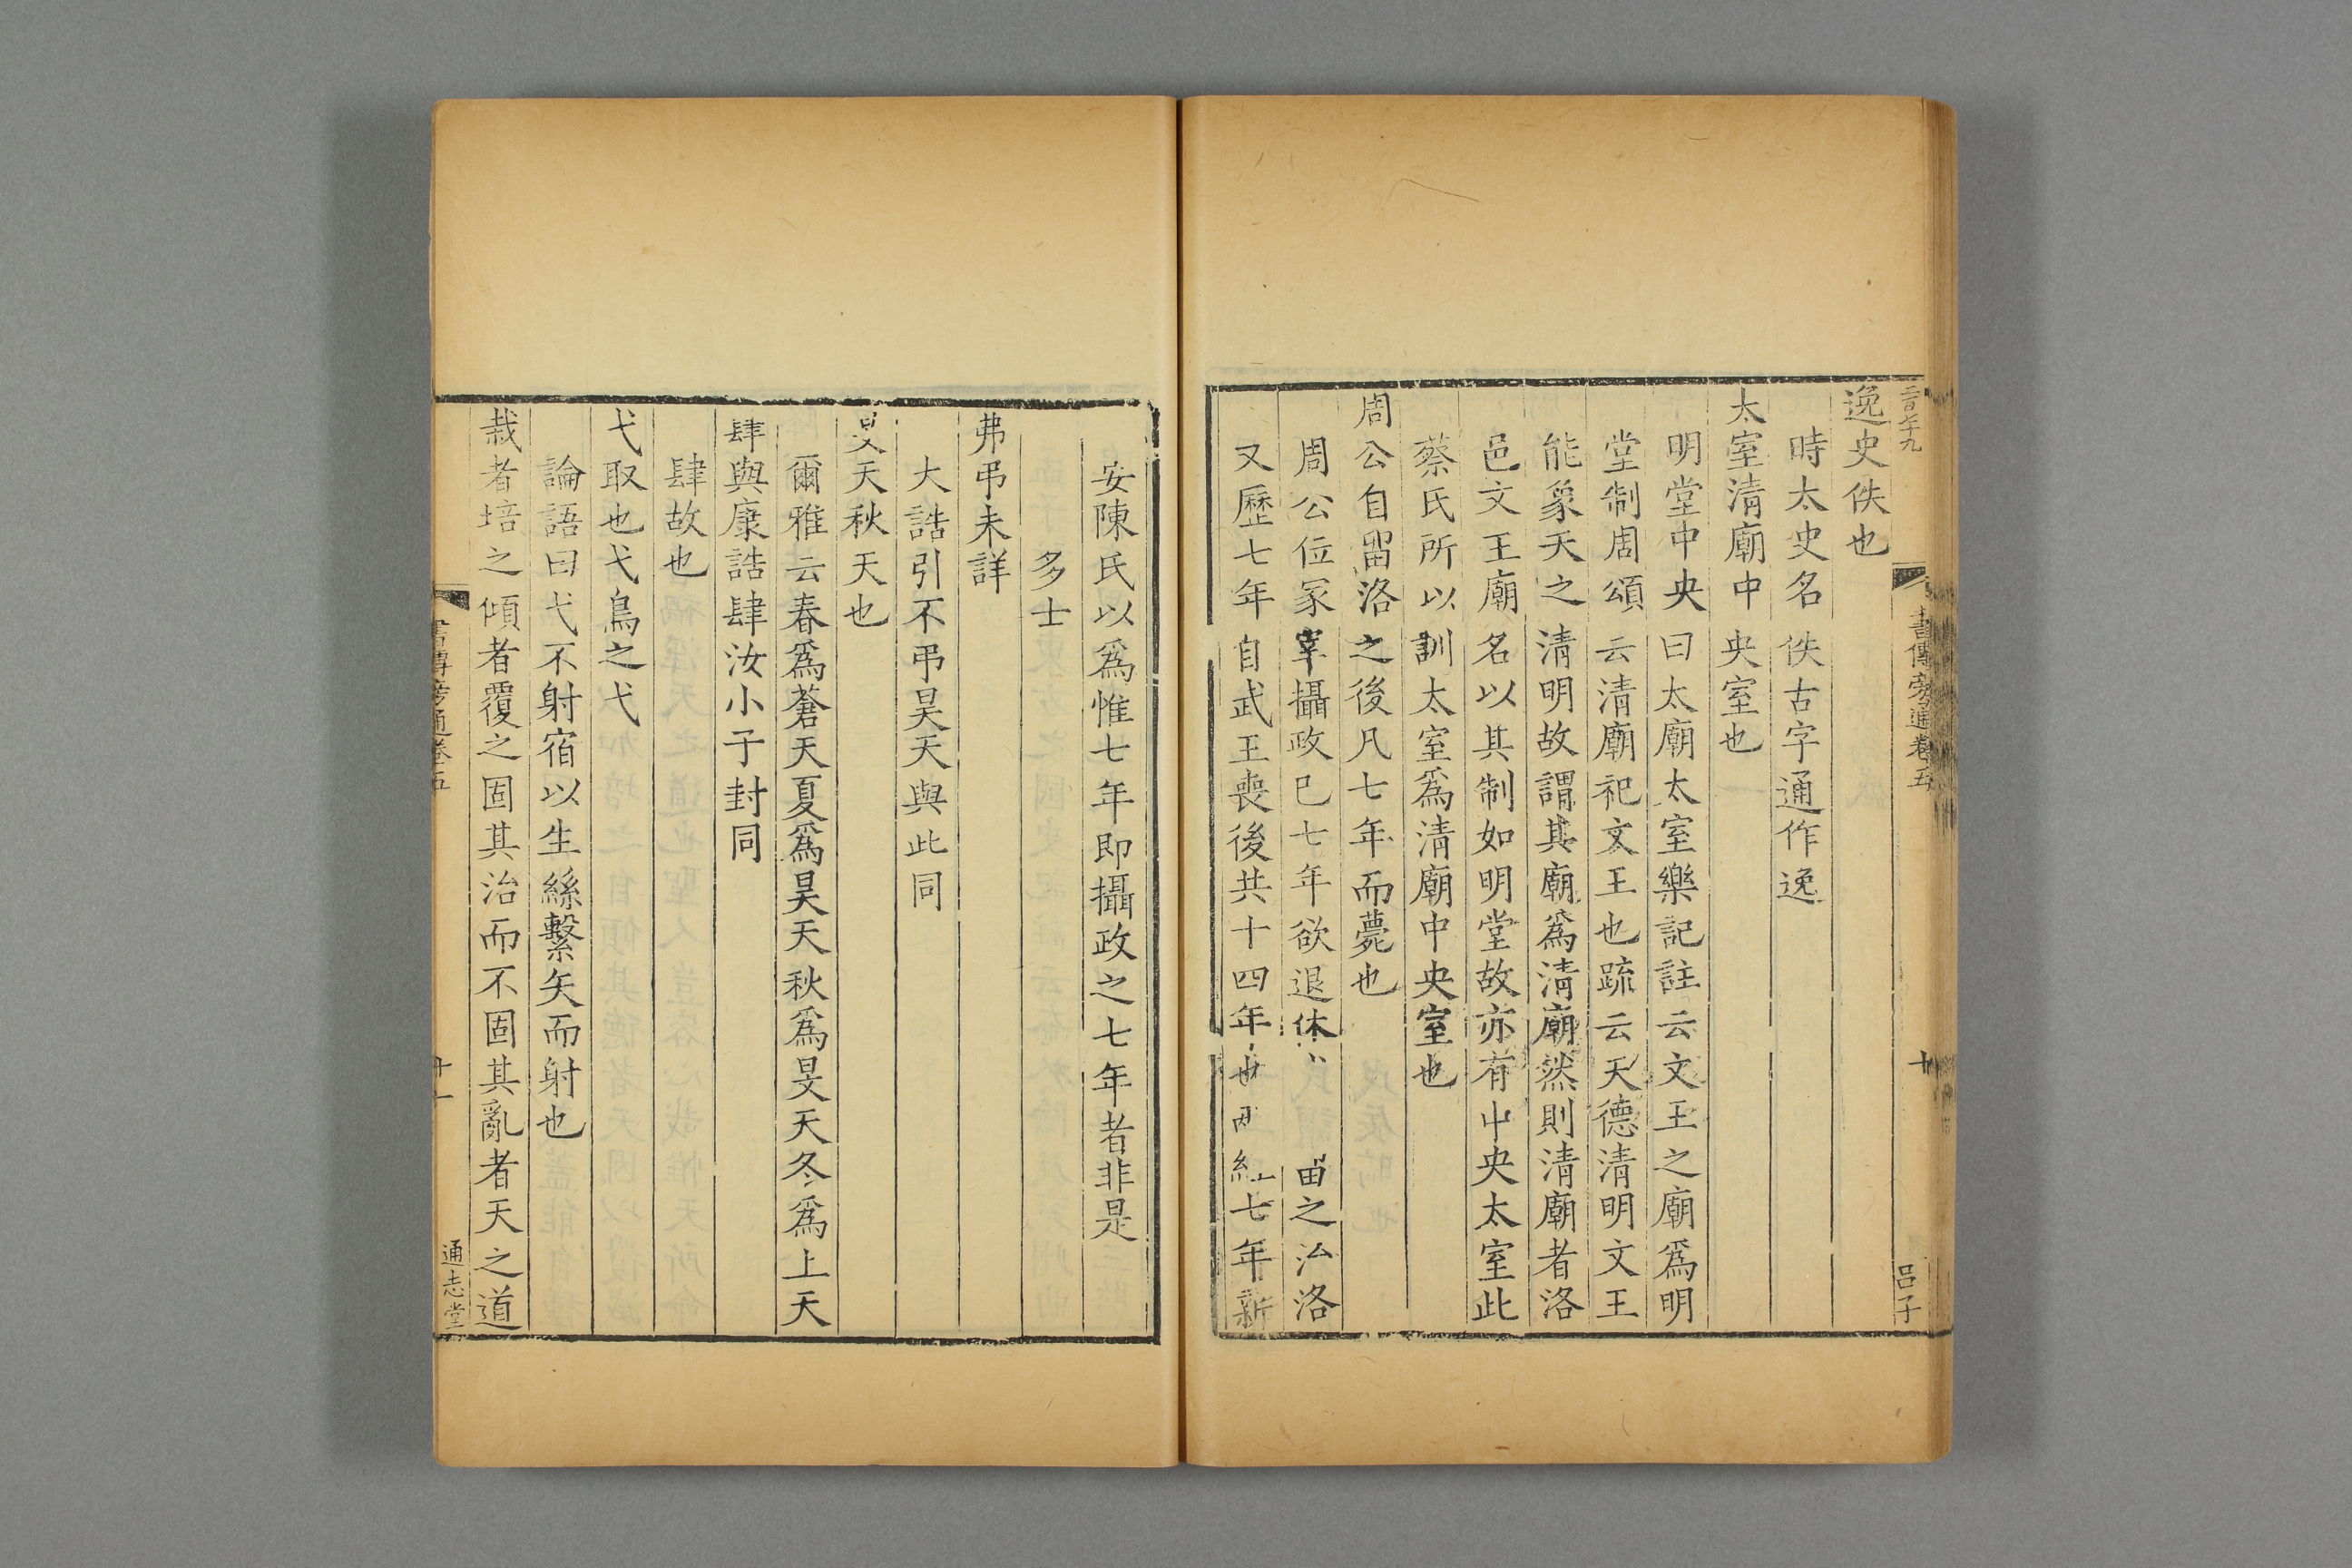 逸史佚也
時太史名佚古字通作逸
太室清廟中央室也
明堂中央曰太廟太室樂記註云文王之廟爲明
堂制周頌云清廟祀文王也疏云天德清明文王
能象天之清明故謂其廟爲清廟然則清廟者洛
邑文王廟名以其制如明堂故亦有中央太室此
蔡氏所以訓太室爲清廟中央室也
周公自留洛之後凡七年而薨也
周公位冢宰攝政已七年欲退休 之治洛
又歷七年自武王喪後共十四年也 七年新
書傳旁通卷五
十
呂子
安陳氏以爲惟七年即攝政之七年者非是
多士
弗弔未詳
大誥引不弔昊天與此同
旻天秋天也
爾雅云春爲蒼天夏爲昊天秋爲旻天冬爲上天
肆與康誥肆汝小子封同
肆故也
弋取也弋鳥之弋
論語曰弋不射宿以生絲繫矢而射也
栽者培之傾者覆之固其治而不固其亂者天之道
書傳旁通卷五
十一
通志堂